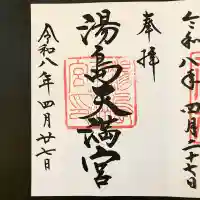 令和八年四月二十七日
奉拝
湯島天満宮
令和八年四月廿七日